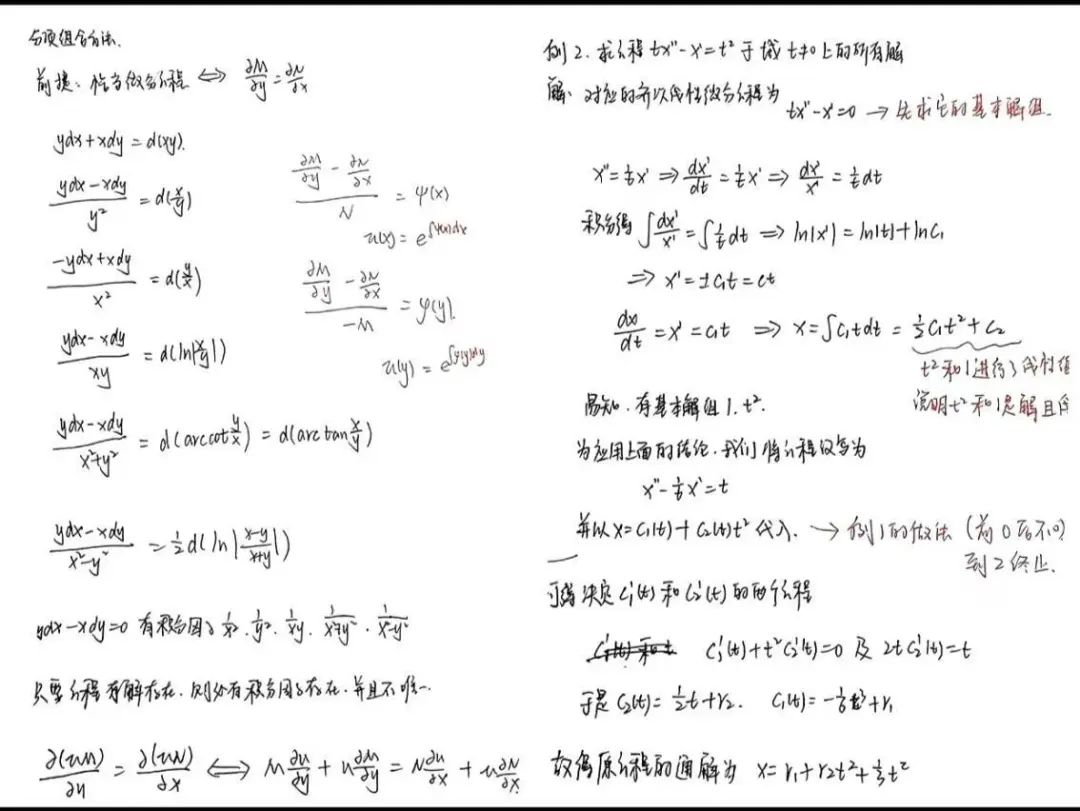 分项组合方法.
前提：恰当微分方程 ⟺ ∂M/∂y = ∂N/∂x
ydx + xdy = d(xy).
(ydx - xdy)/y² = d(x/y)
(-ydx + xdy)/x² = d(y/x)
(ydx - xdy)/xy = d(ln|x/y|)
(ydx - xdy)/(x²+y²) = d(arccot y/x) = d(arctan x/y)
(ydx - xdy)/(x²-y²) = ½d(ln|(x-y)/(x+y)|)
(∂M/∂y - ∂N/∂x)/N = ψ(x)
u(x) = e^∫ψ(x)dx
(∂M/∂y - ∂N/∂x)/-M = φ(y).
u(y) = e^∫φ(y)dy
ydx - xdy = 0 有积分因子 1/x². 1/y². 1/xy. 1/(x²+y²). 1/(x²-y²)
只要方程有解存在, 则必有积分因子存在. 并且不唯一.
∂(uM)/∂y = ∂(uN)/∂x ⟺ M ∂u/∂y + u ∂M/∂y = N ∂u/∂x + u ∂N/∂x.
例2. 求方程 tx″ - x′ = t² 于域 t≠0 上的所有解
解: 对应的齐次线性微分方程为
tx″ - x′ = 0 → 先求它的基本解组.
x″ = 1/t x′ ⇒ dx′/dt = 1/t x′ ⇒ dx′/x′ = 1/t dt
积分得 ∫dx′/x′ = ∫1/t dt ⇒ ln|x′| = ln|t| + lnC₁
⇒ x′ = ±C₁t = Ct
dx/dt = x′ = C₁t ⇒ x = ∫C₁t dt = ½C₁t² + C₂
t²和1进行了线性组
说明t²和1是解且
易知. 有基本解组 1. t².
为应用上面的结论. 我们将方程改写为
x″ - 1/t x′ = t
并以 x = C₁(t) + C₂(t)t² 代入. → 例1的做法 (前0后不0)
到2终止.
可得决定 C₁′(t) 和 C₂′(t) 的两个方程
C₁′(t) + t²C₂′(t) = 0 及 2tC₂′(t) = t
于是 C₂(t) = ½t + r₂. C₁(t) = -1/6 t³ + r₁
故得原方程的通解为 x = r₁ + r₂t² + ⅓t²